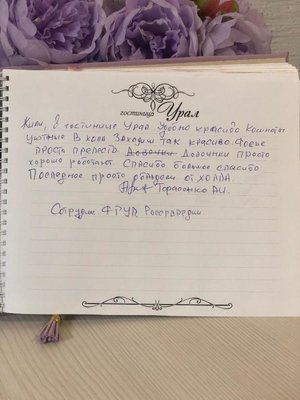 гостиница Урал
Жили, в гостинице Урал Удобно красиво комнаты
уютные В холл Заходим так красиво. Фойе
просто прелесть. Девочки Девочки просто
хорошо работают. Спасибо большое спасибо
Последнее просто от холла.
Тарасенко А.И.
Сотрудн. Росгвардии